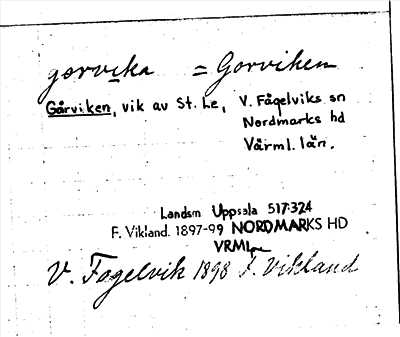 gorvika = Gorviken
Gårviken, vik av St. Le, V. Fågelviks sn
Nordmarks hd
Värml. län.
Landsm Uppsala 517:324
F. Vikland. 1897-99 NORDMARKS HD
VRML
V. Fogelvik 1898 F. Vikland